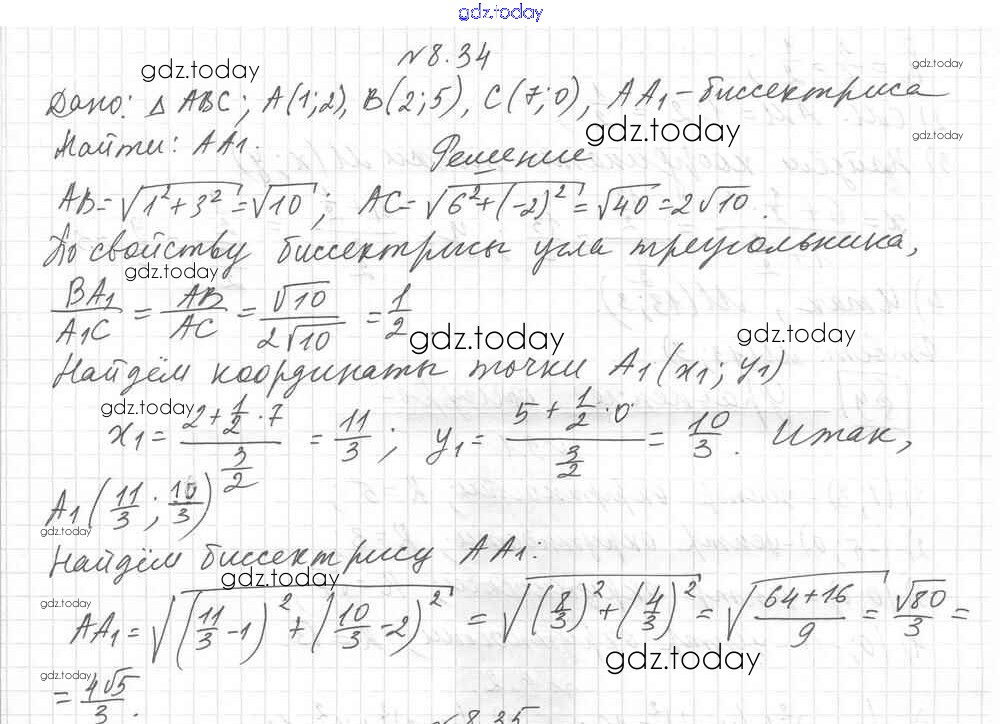 gdz.today
№8.34
gdz.today
gdz.today
Дано: Δ ABC; A(1;2), B(2;5), C(7;0), AA₁ – биссектриса
gdz.today
Найти: AA₁.
Решение
AB = √(1² + 3²) = √10; AC = √(6² + (-2)²) = √40 = 2√10.
По свойству биссектрисы угла треугольника,
gdz.today
BA₁/A₁C = AB/AC = √10/(2√10) = 1/2
gdz.today
gdz.today
Найдём координаты точки A₁(x₁; y₁)
gdz.today
x₁ = (2 + 1/2 · 7)/(3/2) = 11/3; y₁ = (5 + 1/2 · 0)/(3/2) = 10/3. Итак,
A₁(11/3; 10/3)
gdz.today
Найдём биссектрису AA₁:
gdz.today
gdz.today
AA₁ = √((11/3 - 1)² + (10/3 - 2)²) = √((8/3)² + (4/3)²) = √((64+16)/9) = √80/3 =
gdz.today
gdz.today
= 4√5/3.
№8.35